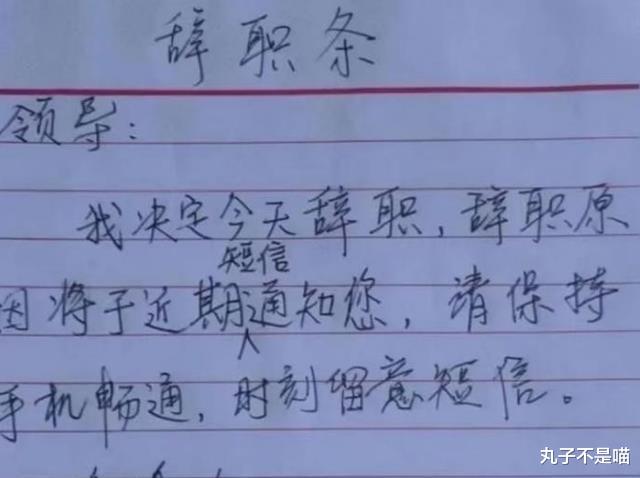 辞职条
领导：
我决定今天辞职，辞职原
因将于近期短信通知您，请保持
手机畅通，时刻留意短信。
丸子不是喵